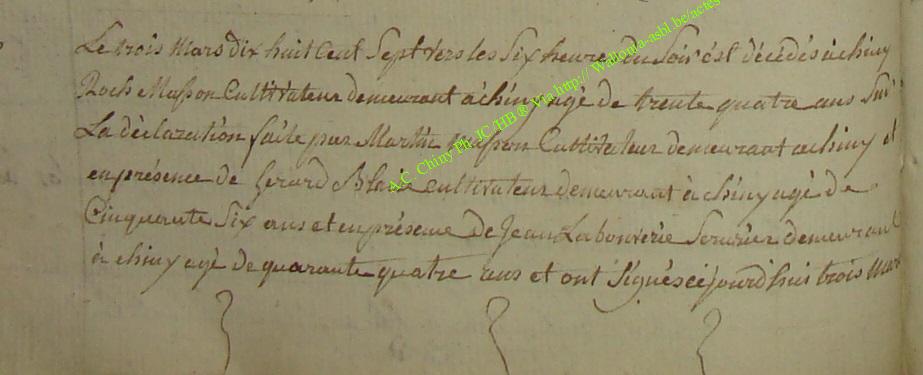 Le trois Mars dix huit Cent Sept vers les Six heures du Soir est décédés à chiny
Roch Masson Cultivateur demeurant à chiny agé de trente quatre ans Suiv
La déclaration faite par Martin Masson Cultivateur demeurant a chiny et
en présence de Gerard Blaise cultivateur demeurant à chiny agé de
Cinquente Six ans et en présence de Jean Labouverie demeurant
à chiny agé de quarante quatre ans et ont Signés cejourd'hui trois Mars
A.C. Chiny Ph. JC/HB ® Via http:// Wallonia-asbl.be/actes